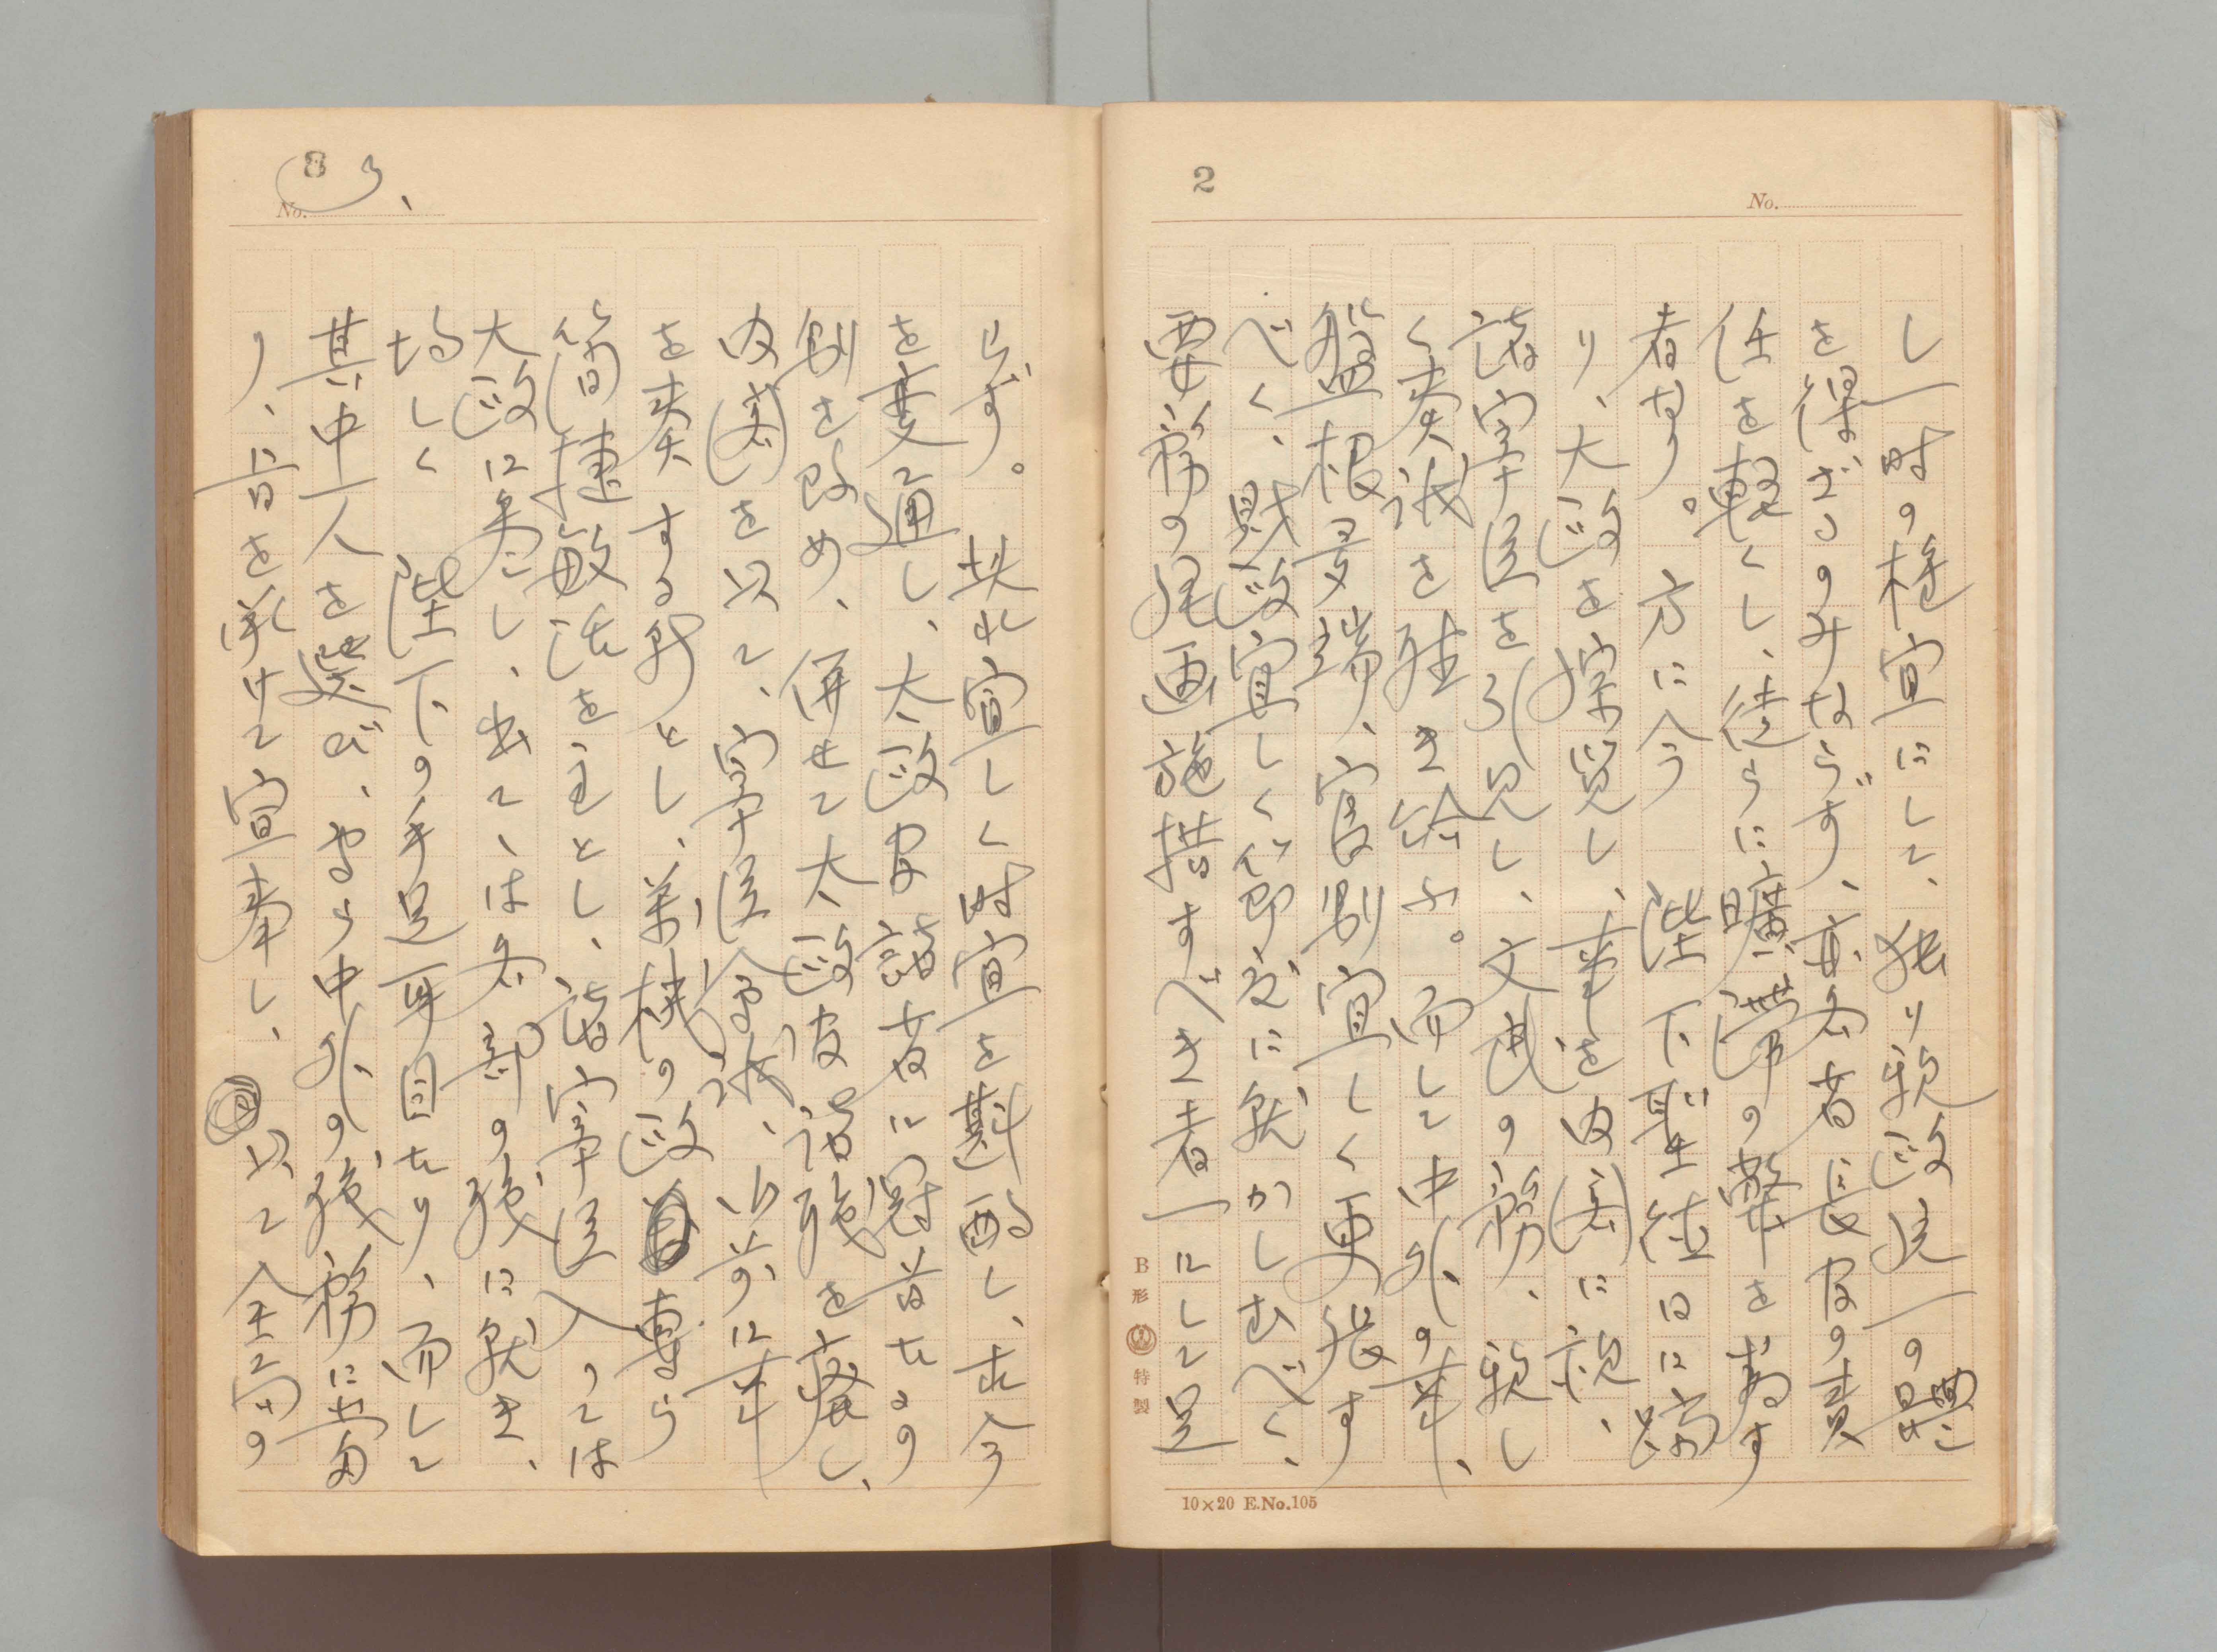 2
No.
し一時の権宜にして、独り親政統一の體
を得ざるのみならず、亦各省長官の責
任を軽くし、徒らに曠滞の弊を為す
者なり。方に今 陛下聖徳日に躋
り、大政を総覧し、事を内閣に視、
諸宰臣を引見し、文武の務、親し
く奏議を聴き給ふ。而して中外の事、
盤根多端、官制宜しく更張す
べく、財政宜しく節度に就かしむべく、
要務の経画施措すべき者一にして足
B形 特製
10×20 E.No.105
3
No.
らず。其れ宜しく時宜を斟酌し、古今
を変通し、太政官諸省に冠首たるの
制を改め、併せて太政官諸職を廃し、
内閣を以て、宰臣会議、御前に事
を奏する所とし、萬機の政専ら
簡捷敏活を主とし、諸宰臣入っては
大政に参し、出て、は各部の職に就き、
均しく 陛下の手足耳目たり、而して
其中一人を選び、専ら中外の職務に当
り、旨を承けて宣奉し、以て全局の